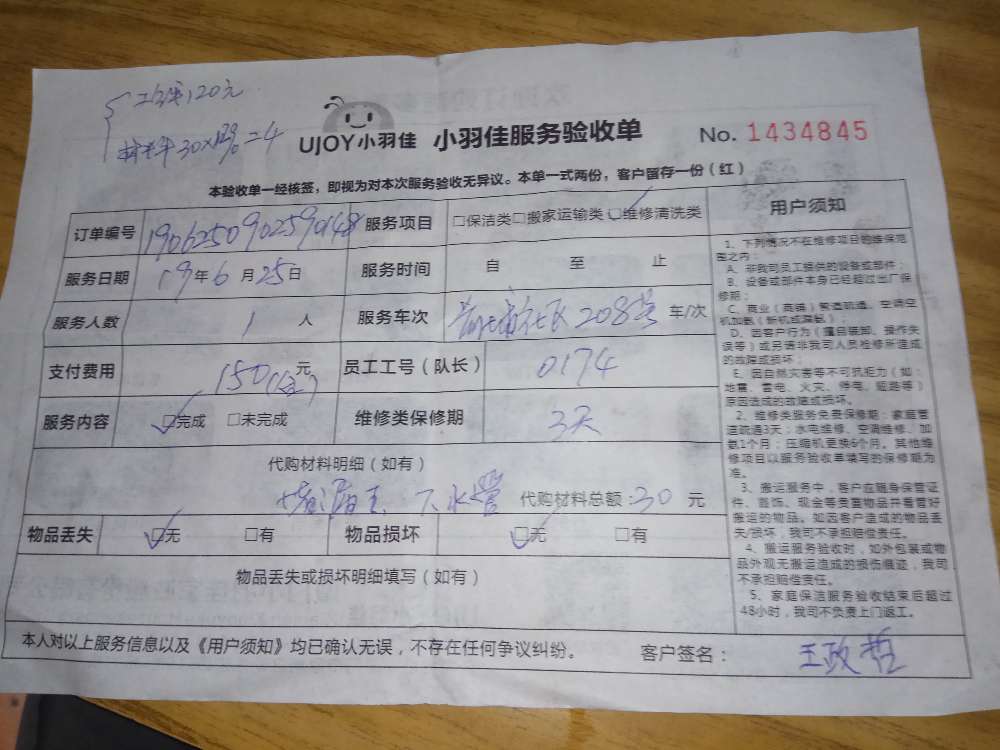 工钱120元
30×12%=4
UJOY小羽佳 小羽佳服务验收单 No. 1434845
本验收单一经核签，即视为对本次服务验收无异议。本单一式两份，客户留存一份（红）
订单编号 190625090259048 服务项目 □保洁类□搬家运输类□维修清洗类 用户须知
服务日期 19年6月25日 服务时间 自 至 止
服务人数 1人 服务车次 208号 车/次
支付费用 150 元 员工工号（队长） 0174
服务内容 □完成 □未完成 维修类保修期 3天
代购材料明细（如有）
下水管 代购材料总额：30元
物品丢失 □无 □有 物品损坏 □无 □有
物品丢失或损坏明细填写（如有）
1、下列情况不在维修项目的维保范
围之内：
A、非我司员工提供的设备或部件；
B、设备或部件本身已经超过出厂保
修期；
C、商业（商铺）管道疏通、空调空
机加氨（新机或漏氨）；
D、因客户行为（擅自装卸、操作失
误等）或另请非我司人员检修所造成
的故障或损坏；
E、因自然灾害等不可抗拒力（如：
地震、雷电、火灾、停电、短路等）
原因造成的故障或损坏。
2、维修类服务免费保修期：家庭管
道疏通3天；水电维修、空调维修、加
氨1个月；压缩机更换6个月。其他维
修项目以服务验收单填写的保修期为
准。
3、搬运服务中，客户应随身保管证
件、首饰、现金等贵重物品并看管好
搬运的物品。如因客户造成的物品丢
失/损坏，我司不承担赔偿责任。
4、搬运服务验收时，如外包装或物
品外观无搬运造成的损伤痕迹，我司
不承担赔偿责任。
5、家庭保洁服务验收结束后超过
48小时，我司不负责上门返工。
本人对以上服务信息以及《用户须知》均已确认无误，不存在任何争议纠纷。 客户签名： 王政哲